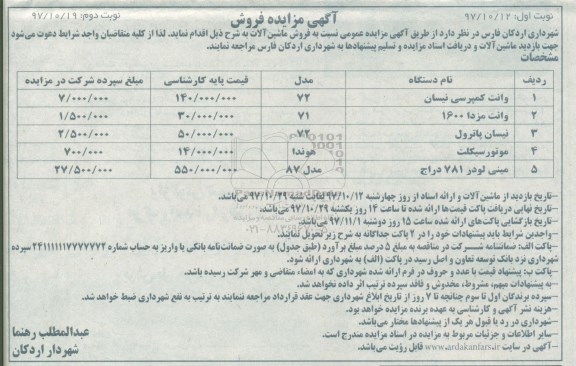 نوبت اول: ۹۷/۱۰/۱۲
آگهی مزایده فروش
نوبت دوم: ۹۷/۱۰/۱۹
شهرداری اردکان فارس در نظر دارد از طریق آگهی مزایده عمومی نسبت به فروش ماشین‌آلات به شرح ذیل اقدام نماید. لذا از کلیه متقاضیان واجد شرایط دعوت می‌شود
جهت بازدید ماشین‌آلات و دریافت اسناد مزایده و تسلیم پیشنهادها به شهرداری اردکان فارس مراجعه نمایند.
مشخصات
ردیف نام دستگاه مدل قیمت پایه کارشناسی مبلغ سپرده شرکت در مزایده
۱ وانت کمپرسی نیسان ۷۲ ۱۴۰/۰۰۰/۰۰۰ ۷/۰۰۰/۰۰۰
۲ وانت مزدا ۱۶۰۰ ۷۱ ۳۰/۰۰۰/۰۰۰ ۱/۵۰۰/۰۰۰
۳ نیسان پاترول ۷۲ ۵۰/۰۰۰/۰۰۰ ۲/۵۰۰/۰۰۰
۴ موتورسیکلت هوندا ۱۴/۰۰۰/۰۰۰ ۷۰۰/۰۰۰
۵ مینی لودر ۷۸۱ دراج مدل ۸۷ ۵۵۰/۰۰۰/۰۰۰ ۲۷/۵۰۰/۰۰۰
-تاریخ بازدید از ماشین‌آلات و ارائه اسناد از روز چهارشنبه ۹۷/۱۰/۱۲ لغایت شنبه ۹۷/۱۰/۲۹ می‌باشد.
-تاریخ نهایی دریافت پاکت قیمت‌ها ارائه شده تا ساعت ۱۴ روز یکشنبه ۹۷/۱۰/۲۹ می‌باشد.
-تاریخ بازگشایی پاکت‌های ارائه شده ساعت ۱۵ روز دوشنبه ۹۷/۱۱/۱ می‌باشد.
-واجدین شرایط باید پیشنهادات خود را در ۲ پاکت جداگانه به شرح زیر تحویل نمایند.
-پاکت الف: ضمانتنامه شــرکت در مناقصه به مبلغ ۵ درصد مبلغ برآورد (طبق جدول) به صورت ضمانت‌نامه بانکی یا واریز به حساب شماره ۲۴۱۱۱۱۱۱۷۷۷۷۷۷۲ سپرده
شهرداری نزد بانک توسعه تعاون و اصل رسید در پاکت (الف) به شهرداری ارائه شود.
-پاکت ب: پیشنهاد قیمت با عدد و حروف در فرم ارائه شده شهرداری که به امضاء متقاضی و مهر شرکت رسیده باشد.
-به پیشنهادات مبهم، مشروط، مخدوش و فاقد سپرده ترتیب اثر داده نخواهد شد.
-سپرده برندگان اول تا سوم چنانچه تا ۷ روز از تاریخ ابلاغ شهرداری جهت عقد قرارداد مراجعه ننمایند به ترتیب به نفع شهرداری ضبط خواهد شد.
-هزینه نشر آگهی و کارشناسی به عهده برنده مزایده خواهد بود.
-شهرداری در رد یا قبول هر یک از پیشنهادها مختار می‌باشد.
-سایر اطلاعات و جزئیات مربوط به مزایده در اسناد مزایده مندرج است.
-آگهی در سایت www.ardakanfars.ir قابل رؤیت می‌باشد.
عبدالمطلب رهنما
شهردار اردکان